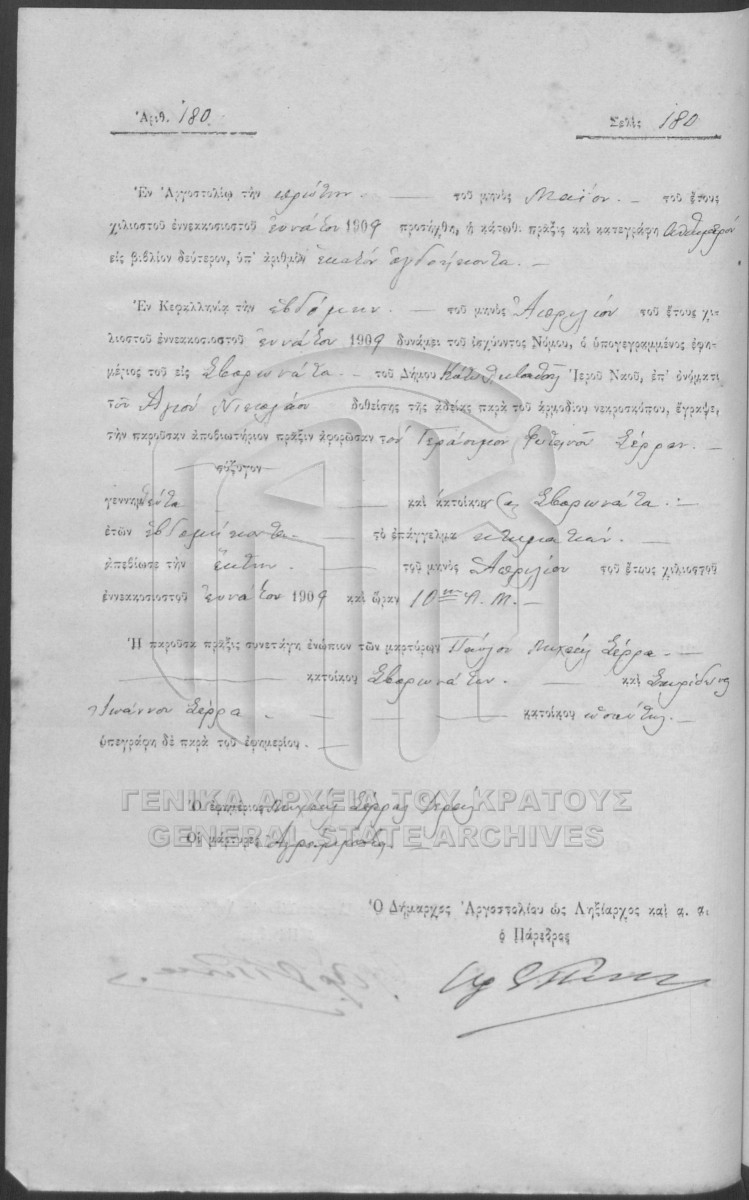 Ἀριθ. 180 Σελὶς 180
Ἐν Ἀργοστολίῳ τὴν πρώτην τοῦ μηνὸς Μαΐου τοῦ ἔτους
χιλιοστοῦ ἐννεακοσιοστοῦ ἐννάτου 1909 προσήχθη, ἡ κάτωθι πρᾶξις καὶ κατεγράφη
εἰς βιβλίον δεύτερον, ὑπ' ἀριθμὸν ἑκατὸν ὀγδοήκοντα.
Ἐν Κεφαλληνίᾳ τὴν ἑβδόμην τοῦ μηνὸς Ἀπριλίου τοῦ ἔτους χι-
λιοστοῦ ἐννεακοσιοστοῦ ἐννάτου 1909 δυνάμει τοῦ ἰσχύοντος Νόμου, ὁ ὑπογεγραμμένος ἐφη-
μέριος τοῦ εἰς Σβορωνάτα τοῦ Δήμου Ἱεροῦ Ναοῦ, ἐπ' ὀνόματι
τοῦ Ἁγίου Νικολάου δοθείσης τῆς ἀδείας παρὰ τοῦ ἁρμοδίου νεκροσκόπου, ἔγραψε,
τὴν παροῦσαν ἀποβιωτήριον πρᾶξιν ἀφορῶσαν τὸν Γεράσιμον Φωτεινοῦ Σέρραν.
σύζυγον
γεννηθέντα καὶ κάτοικον Σβορωνάτα
ἐτῶν ἑβδομήκοντα τὸ ἐπάγγελμα κτηματίαν
ἀπεβίωσε τὴν ἕκτην τοῦ μηνὸς Ἀπριλίου τοῦ ἔτους χιλιοστοῦ
ἐννεακοσιοστοῦ ἐννάτου 1909 καὶ ὥραν 10ην π.μ.
Ἡ παροῦσα πρᾶξις συνετάγη ἐνώπιον τῶν μαρτύρων Παύλου Μιχαήλ Σέρρα
κατοίκου Σβορωνάτων καὶ Σπυρίδωνος
Ἰωάννου Σέρρα κατοίκου ὡσαύτως
ὑπεγράφη δὲ παρὰ τοῦ ἐφημερίου.
Ὁ ἐφημέριος Μιχαήλ Σέρρας Ἱερεύς
Οἱ μάρτυρες Ἀγράμματοι
ΓΕΝΙΚΑ ΑΡΧΕΙΑ ΤΟΥ ΚΡΑΤΟΥΣ
GENERAL STATE ARCHIVES
Ὁ Δήμαρχος Ἀργοστολίου ὡς Ληξίαρχος καὶ α. α.
ὁ Πάρεδρος